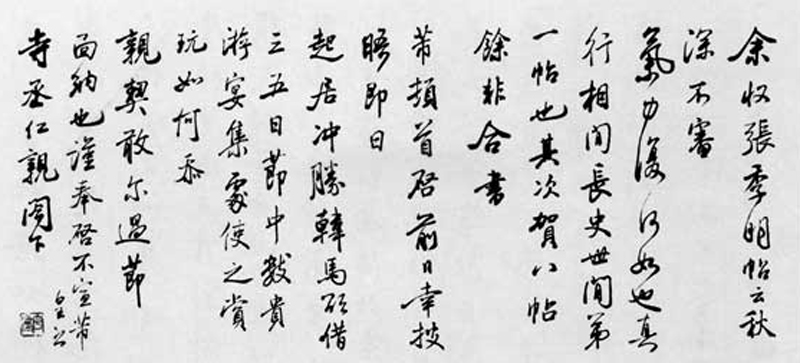 余收張季明帖云秋
深不審
氣力復何如也真
行相間長史世間第
一帖也其次賀八帖
餘非合書
芾頓首啓前日幸披
晤即日
起居冲勝韓馬欲借
三五日節中數貴
游宴集處使之賞
玩如何恭
親契敢尔過節
面納也謹奉啓不宣芾
寺丞仁親閣下